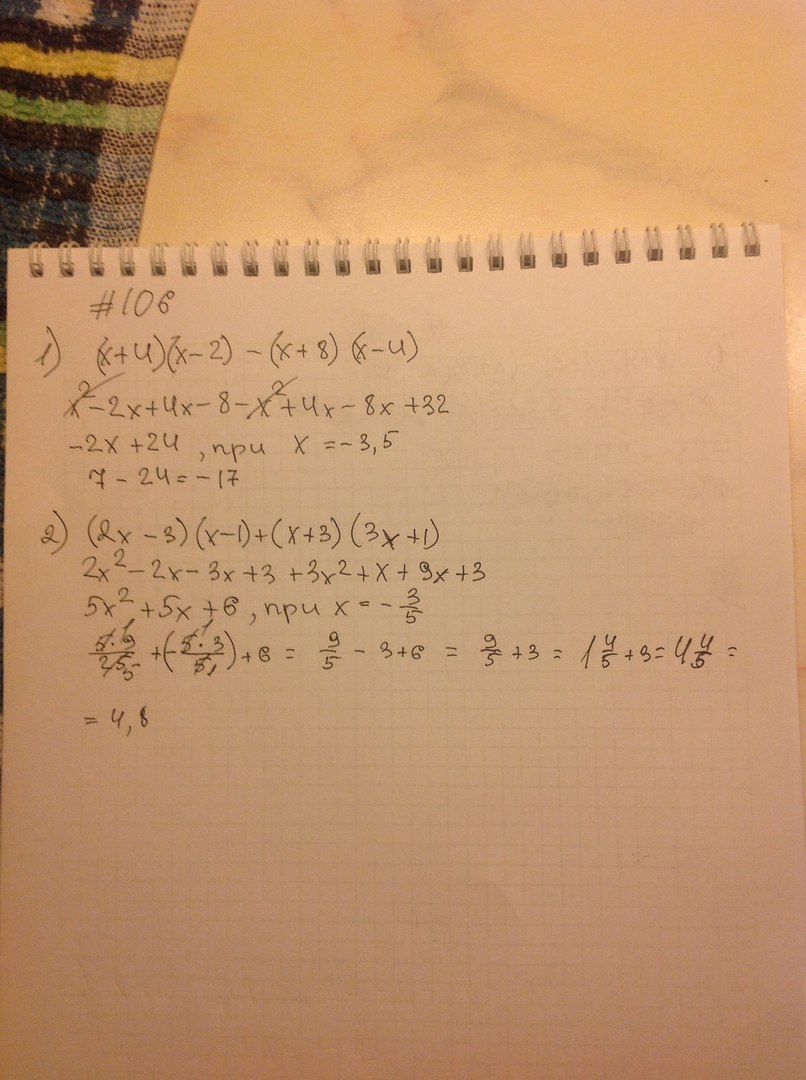 #106
1) (x+4)(x-2) - (x+8)(x-4)
x² - 2x + 4x - 8 - x² + 4x - 8x + 32
-2x + 24, при x = -3,5
7 - 24 = -17
2) (2x - 3)(x-1) + (x+3)(3x+1)
2x² - 2x - 3x + 3 + 3x² + x + 9x + 3
5x² + 5x + 6, при x = -3/5
5·9/25 + (-5·3/5) + 6 = 9/5 - 3 + 6 = 9/5 + 3 = 1 4/5 + 3 = 4 4/5 =
= 4,8